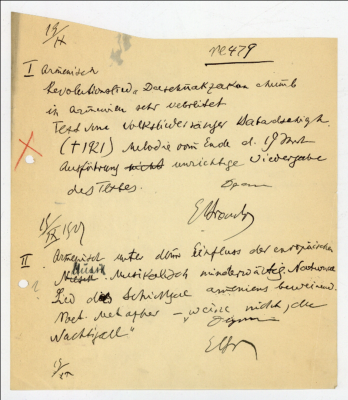 19/IX
No 479
I Armenisch
Revolutionslied „Daschnakzakan chumb
in Armenien sehr verbreitet
Text eine Volksliedersänger
(† 1921) Melodie vom Ende d. 19
Ausführung nicht unrichtige Wiedergabe
des Textes.
19/IX 19
II Armenisch unter dem Einfluss der europäischen
Musik. Musikalisch minderwertig.
Lied das Schicksal Armeniens beweinend.
Poet. Metapher – „weine nicht, du
Nachtigall"
19/IX